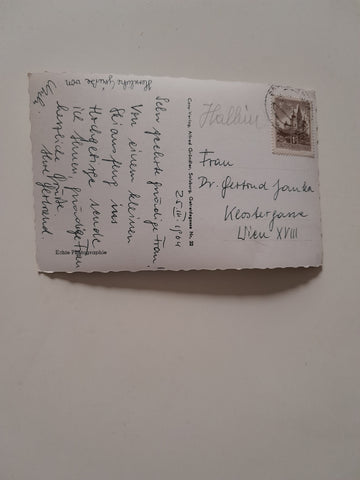 25.III.1964
Sehr geehrte gnädige Frau!
Von einem kleinen
Skiausflug ins
Hochgebirge sende
ich Ihnen, gnädige Frau
herzliche Grüße
Ihre Gertraud.
Herzliche Grüße von
Echte Photographie
Cosy-Verlag Alfred Gründler, Salzburg, Gstättengasse Nr. 22
Frau
Dr. Gertrud Janka
Klostergasse
Wien XVIII